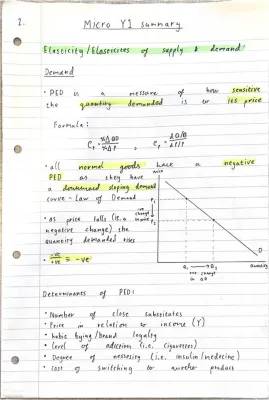 2.
Micro Y1 summary
Elasticity/Elasticities of supply & demand
Demand
• PED is a measure of how sensitive
the quantity demanded is to its price
Formula:
%ΔQD
%ΔP
ΔQ/Q
ΔP/P
• all normal goods have a negative
PED as they have
a downward sloping demand
curve - Law of Demand
• as price falls (i.e. a
negative change) the
quantity demanded rises
= -ve
Price
P1
P2
-ve change in P
Q1 → Q2
+ve change in QD
D
Quantity
Determinants of PED:
• Number of close substitutes
• Price in relation to income (Y)
• habit buying/brand loyalty
• level of addiction (i.e. cigarettes)
• Degree of necessity (i.e. insulin/medicine)
• cost of switching to another product